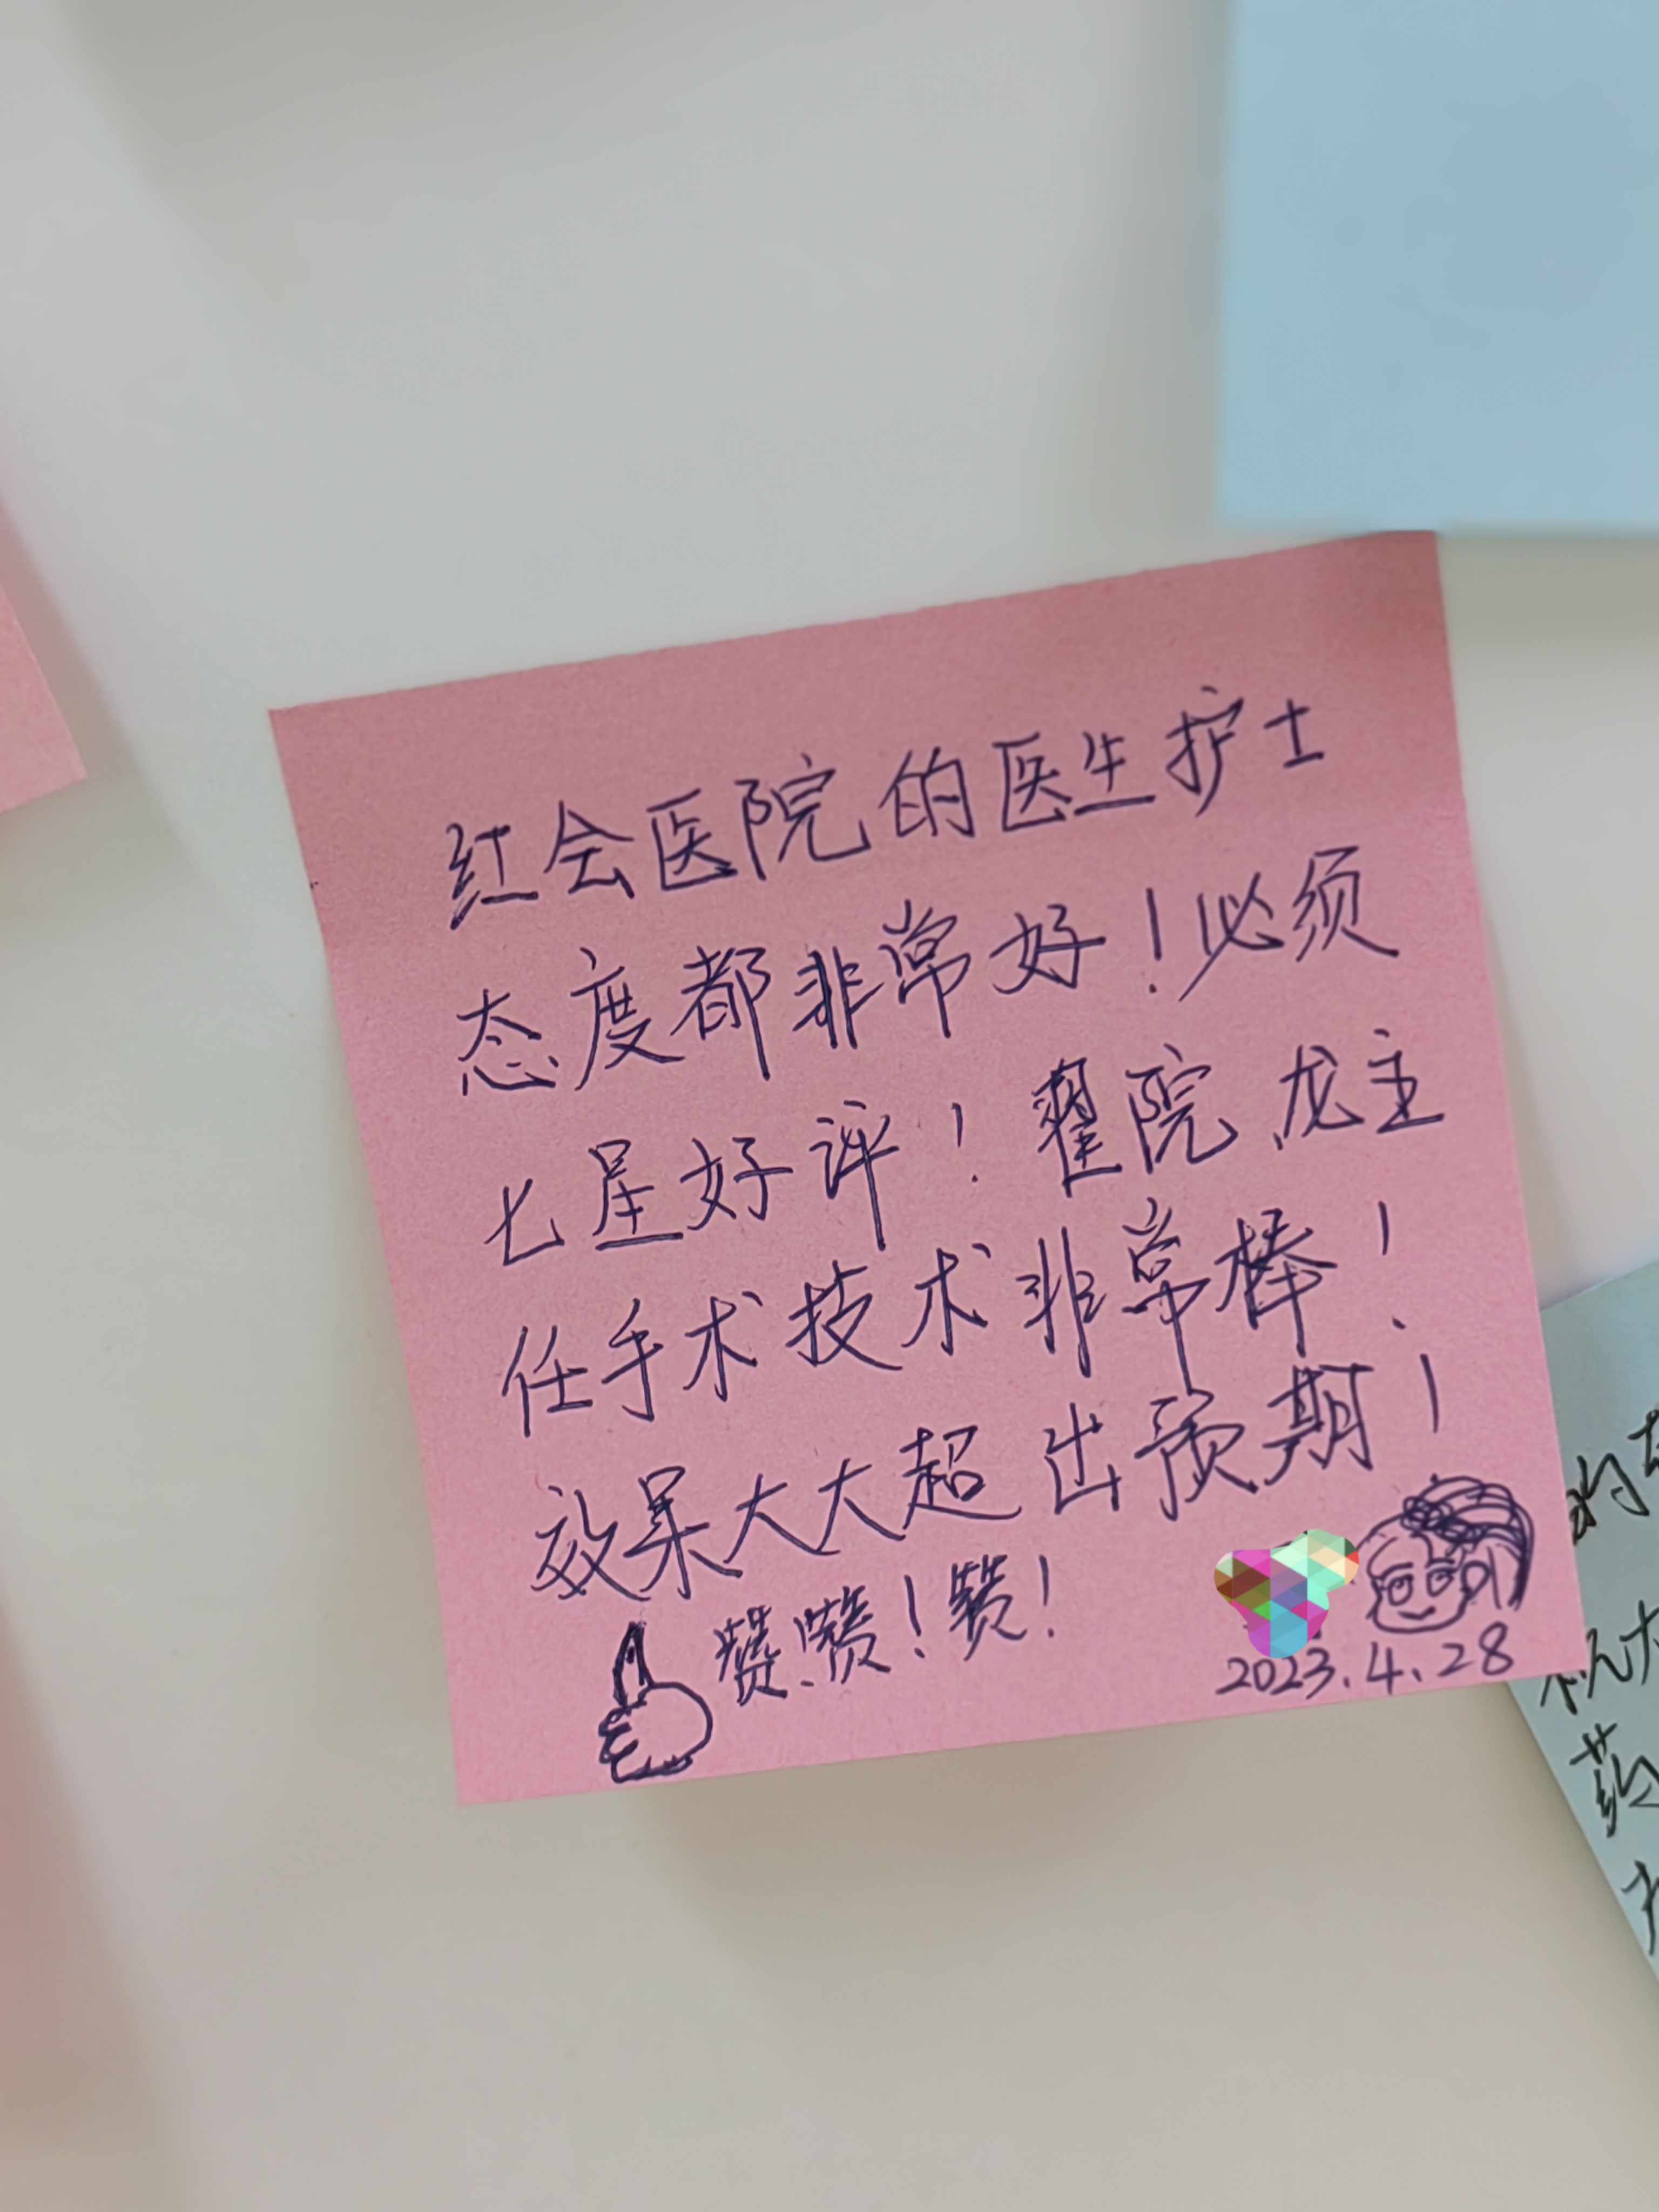 红会医院的医生护士
态度都非常好！必须
七星好评！翟院、龙主
任手术技术非常棒！
效果大大超出预期！
赞！赞！赞！
2023.4.28
的
杭
药